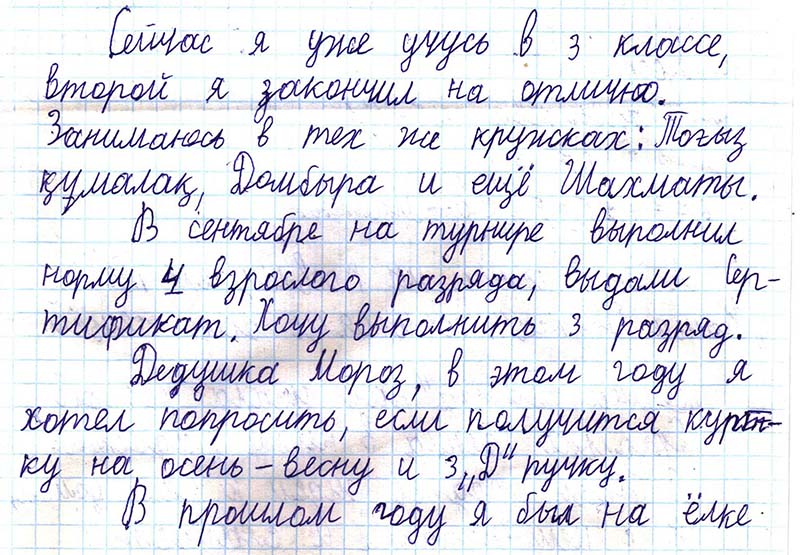 Сейчас я уже учусь в 3 классе,
второй я закончил на отлично.
Занимаюсь в тех же кружках: Тоғыз
құмалақ, Домбыра и ещё Шахматы.
В сентябре на турнире выполнил
норму 4 взрослого разряда, выдали Сер-
тификат. Хочу выполнить 3 разряд.
Дедушка Мороз, в этом году я
хотел попросить, если получится курт-
ку на осень-весну и 3„Д“ ручку.
В прошлом году я был на ёлке